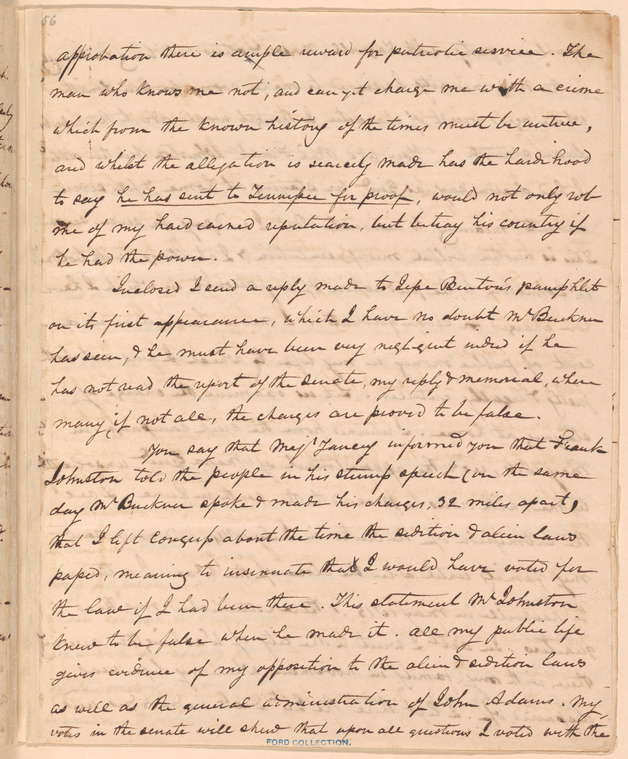 56
approbation there is ample reward for patriotic service. The
man who knows me not, and can yet charge me with a crime
which from the known history of the times must be untrue,
and whilst the allegation is scarcely made has the hardihood
to say he has sent to Tennissee for proof, would not only rob
me of my hard earned reputation, but betray his country if
he had the power.
Inclosed I send a reply made to Jesse Benton's pamphlet
on its first appearance, which I have no doubt Mr Buckner
has seen, & he must have been very negligent indeed if he
has not read the report of the Senate, my reply & memorial, where
many, if not all, the charges are proved to be false.
You say that Majr Yancey informed you that Frank
Johnston told the people in his stump speech (on the same
day Mr Buckner spoke & made his charges, 32 miles apart)
that I left Congress about the time the sedition & alien laws
passed, meaning to insinuate that I would have voted for
the law if I had been there. This statement Mr Johnston
knew to be false when he made it. All my public life
gives evidence of my opposition to the alien & sedition laws
as well as the general administration of John Adams. My
votes in the senate will shew that upon all questions I voted with the
FORD COLLECTION.